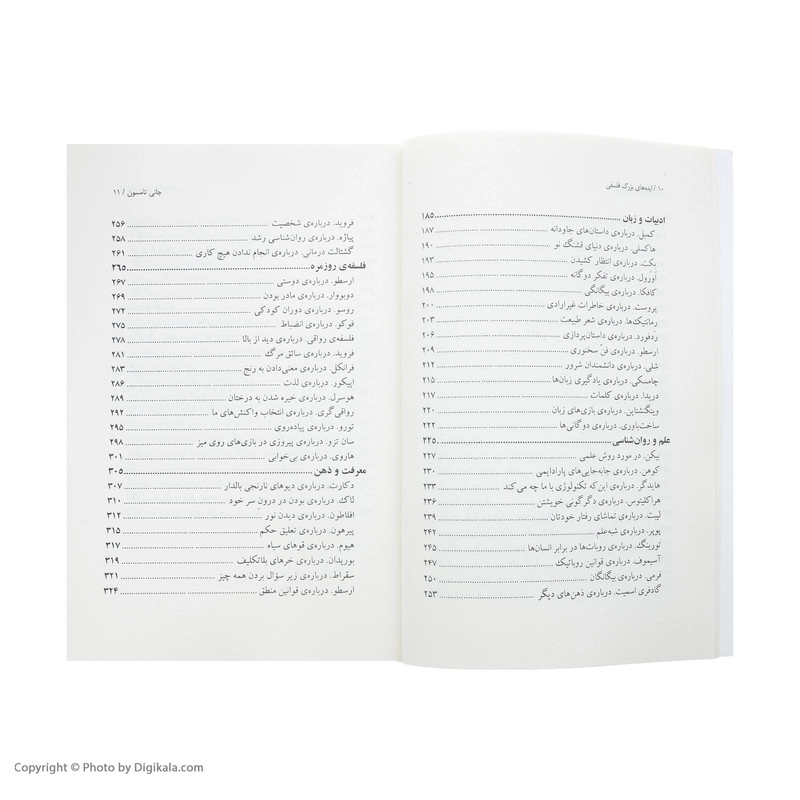 ۱۰ / ایده‌های بزرگ فلسفی
ادبیات و زبان ۱۸۵
کمبل. درباره‌ی داستان‌های جاودانه ۱۸۷
هاکسلی. درباره‌ی دنیای قشنگ نو ۱۹۰
بکت. درباره‌ی انتظار کشیدن ۱۹۳
اُرول. درباره‌ی تفکر دوگانه ۱۹۵
کافکا. درباره‌ی بیگانگی ۱۹۸
پروست. درباره‌ی خاطرات غیرارادی ۲۰۰
رمانتیک‌ها. درباره‌ی شعر طبیعت ۲۰۳
ردفورد. درباره‌ی داستان‌پردازی ۲۰۶
ارسطو. درباره‌ی فن سخنوری ۲۰۹
شلی. درباره‌ی دانشمندان شرور ۲۱۲
چامسکی. درباره‌ی یادگیری زبان‌ها ۲۱۵
دریدا. درباره‌ی کلمات ۲۱۷
ویتگنشتاین. درباره‌ی بازی‌های زبان ۲۲۰
ساخت‌باوری. درباره‌ی دوگانی‌ها ۲۲۲
علم و روان‌شناسی ۲۲۵
بیکن. در مورد روش علمی ۲۲۷
کوهن. درباره‌ی جابه‌جایی‌های پارادایمی ۲۳۰
هایدگر. درباره‌ی این‌که تکنولوژی با ما چه می‌کند ۲۳۳
هراکلیتوس. درباره‌ی دگرگونی خویشتن ۲۳۶
لیبت. درباره‌ی تماشای رفتار خودتان ۲۳۹
پوپر. درباره‌ی شبه‌علم ۲۴۲
تورینگ. درباره‌ی روبات‌ها در برابر انسان‌ها ۲۴۵
آسیموف. درباره‌ی قوانین روباتیک ۲۴۷
فرمی. درباره‌ی بیگانگان ۲۵۰
گادفری اسمیت. درباره‌ی ذهن‌های دیگر ۲۵۳
جانی تامسون / ۱۱
فروید. درباره‌ی شخصیت ۲۵۶
پیاژه. درباره‌ی روان‌شناسی رشد ۲۵۸
گشتالت درمانی. درباره‌ی انجام ندادن هیچ کاری ۲۶۱
فلسفه‌ی روزمره ۲۶۵
ارسطو. درباره‌ی دوستی ۲۶۷
دوبووار. درباره‌ی مادر بودن ۲۶۹
روسو. درباره‌ی دوران کودکی ۲۷۲
فوکو. درباره‌ی انضباط ۲۷۵
فلسفه‌ی رواقی. درباره‌ی دید از بالا ۲۷۸
فروید. درباره‌ی سائق مرگ ۲۸۱
فرانکل. درباره‌ی معنی‌دادن به رنج ۲۸۳
اپیکور. درباره‌ی لذت ۲۸۶
هوسرل. درباره‌ی خیره شدن به درختان ۲۸۹
رواقی‌گری. درباره‌ی انتخاب واکنش‌های ما ۲۹۲
تورو. درباره‌ی پیاده‌روی ۲۹۵
سان تزو. درباره‌ی پیروزی در بازی‌های روی میز ۲۹۸
هاروی. درباره‌ی بی‌خوابی ۳۰۱
معرفت و ذهن ۳۰۵
دکارت. درباره‌ی دیوهای نارنجی بالدار ۳۰۷
لاک. درباره‌ی بودن در درون سر خود ۳۱۰
افلاطون. درباره‌ی دیدن نور ۳۱۲
پیرهون. درباره‌ی تعلیق حکم ۳۱۵
هیوم. درباره‌ی قوهای سیاه ۳۱۷
بوریدان. درباره‌ی خرهای بلاتکلیف ۳۱۹
سقراط. درباره‌ی زیر سؤال بردن همه چیز ۳۲۱
ارسطو. درباره‌ی قوانین منطق ۳۲۴
Copyright © Photo by Digikala.com